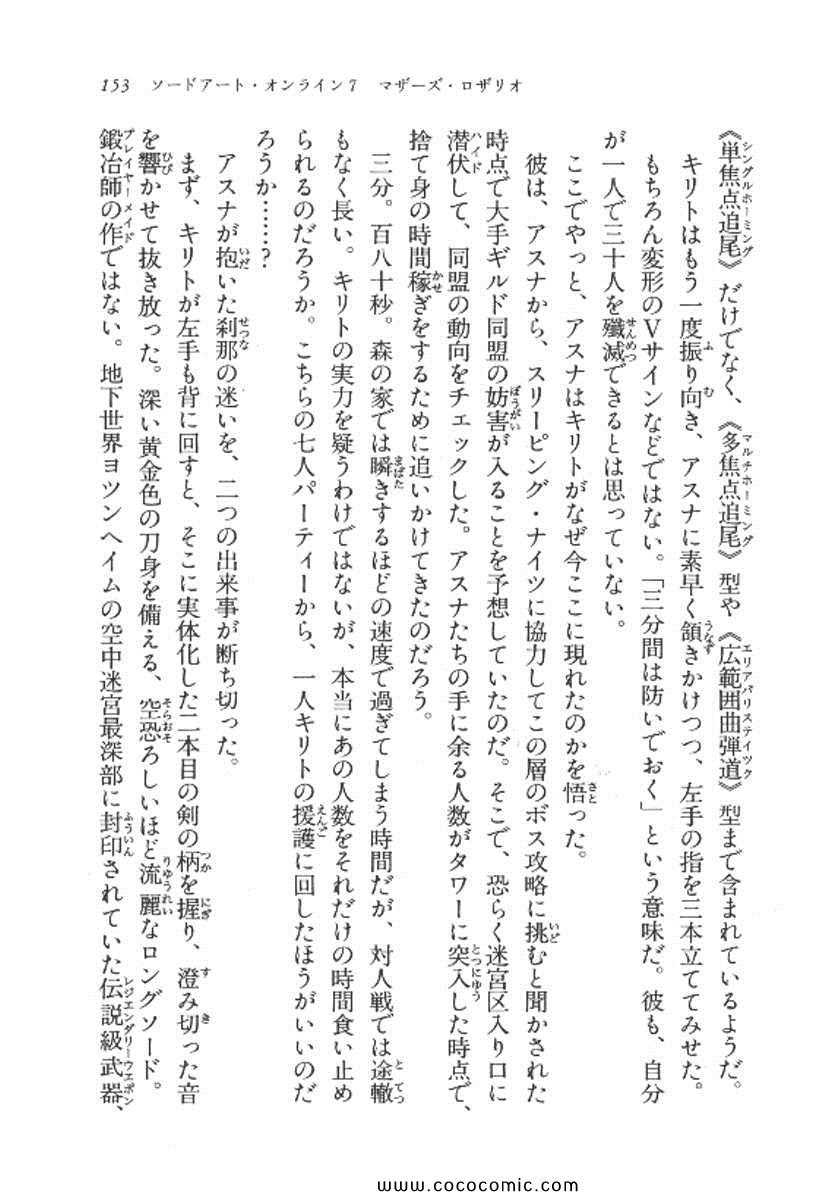 153　ソードアート・オンライン7　マザーズ・ロザリオ
《単焦点追尾》だけでなく、《多焦点追尾》型や《広範囲曲弾道》型まで含まれているようだ。
キリトはもう一度振り向き、アスナに素早く頷きかけつつ、左手の指を三本立ててみせた。
もちろん変形のVサインなどではない。「三分間は防いでおく」という意味だ。彼も、自分
が一人で三十人を殲滅できるとは思っていない。
ここでやっと、アスナはキリトがなぜ今ここに現れたのかを悟った。
彼は、アスナから、スリーピング・ナイツに協力してこの層のボス攻略に挑むと聞かされた
時点で大手ギルド同盟の妨害が入ることを予想していたのだ。そこで、恐らく迷宮区入り口に
潜伏して、同盟の動向をチェックした。アスナたちの手に余る人数がタワーに突入した時点で、
捨て身の時間稼ぎをするために追いかけてきたのだろう。
三分。百八十秒。森の家では瞬きするほどの速度で過ぎてしまう時間だが、対人戦では途轍
もなく長い。キリトの実力を疑うわけではないが、本当にあの人数をそれだけの時間食い止め
られるのだろうか。こちらの七人パーティーから、一人キリトの援護に回したほうがいいのだ
ろうか……？
アスナが抱いた刹那の迷いを、二つの出来事が断ち切った。
まず、キリトが左手も背に回すと、そこに実体化した二本目の剣の柄を握り、澄み切った音
を響かせて抜き放った。深い黄金色の刀身を備える、空恐ろしいほど流麗なロングソード。
鍛冶師の作ではない。地下世界ヨツンヘイムの空中迷宮最深部に封印されていた伝説級武器、
www.cococomic.com